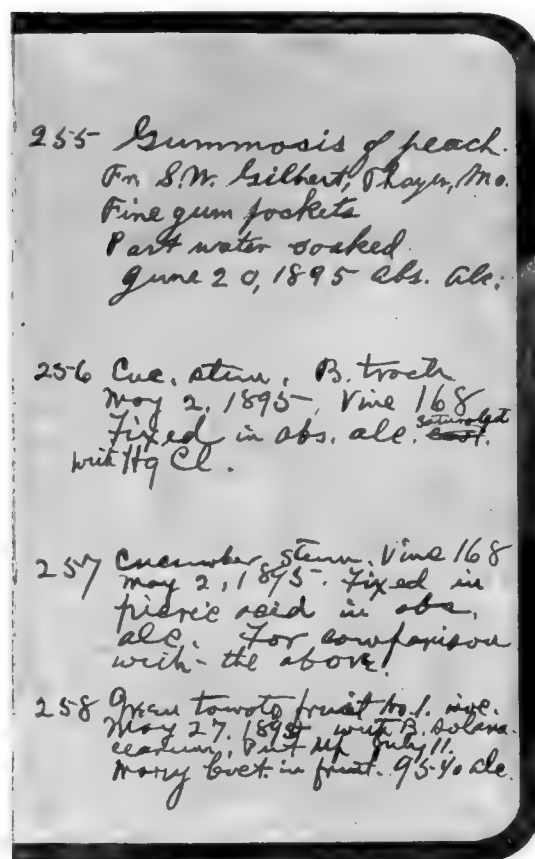 255 Gummosis of peach.
Fm S.W. Gilbert, Thayer, Mo.
Fine gum pockets
Part water soaked.
June 20, 1895 abs. alc.
256 Cuc. stem. B. trach
May 2, 1895, Vine 168
Fixed in abs. alc. saturated
with Hg Cl.
257 Cucumber stem. Vine 168
May 2, 1895. Fixed in
picric acid in abs.
alc. For comparison
with the above!
258 Green tomato fruit No. 1. inoc.
May 27, 1895, with B. Solana-
cearum, Put up July 11.
Many bact. in fruit. 95% alc.